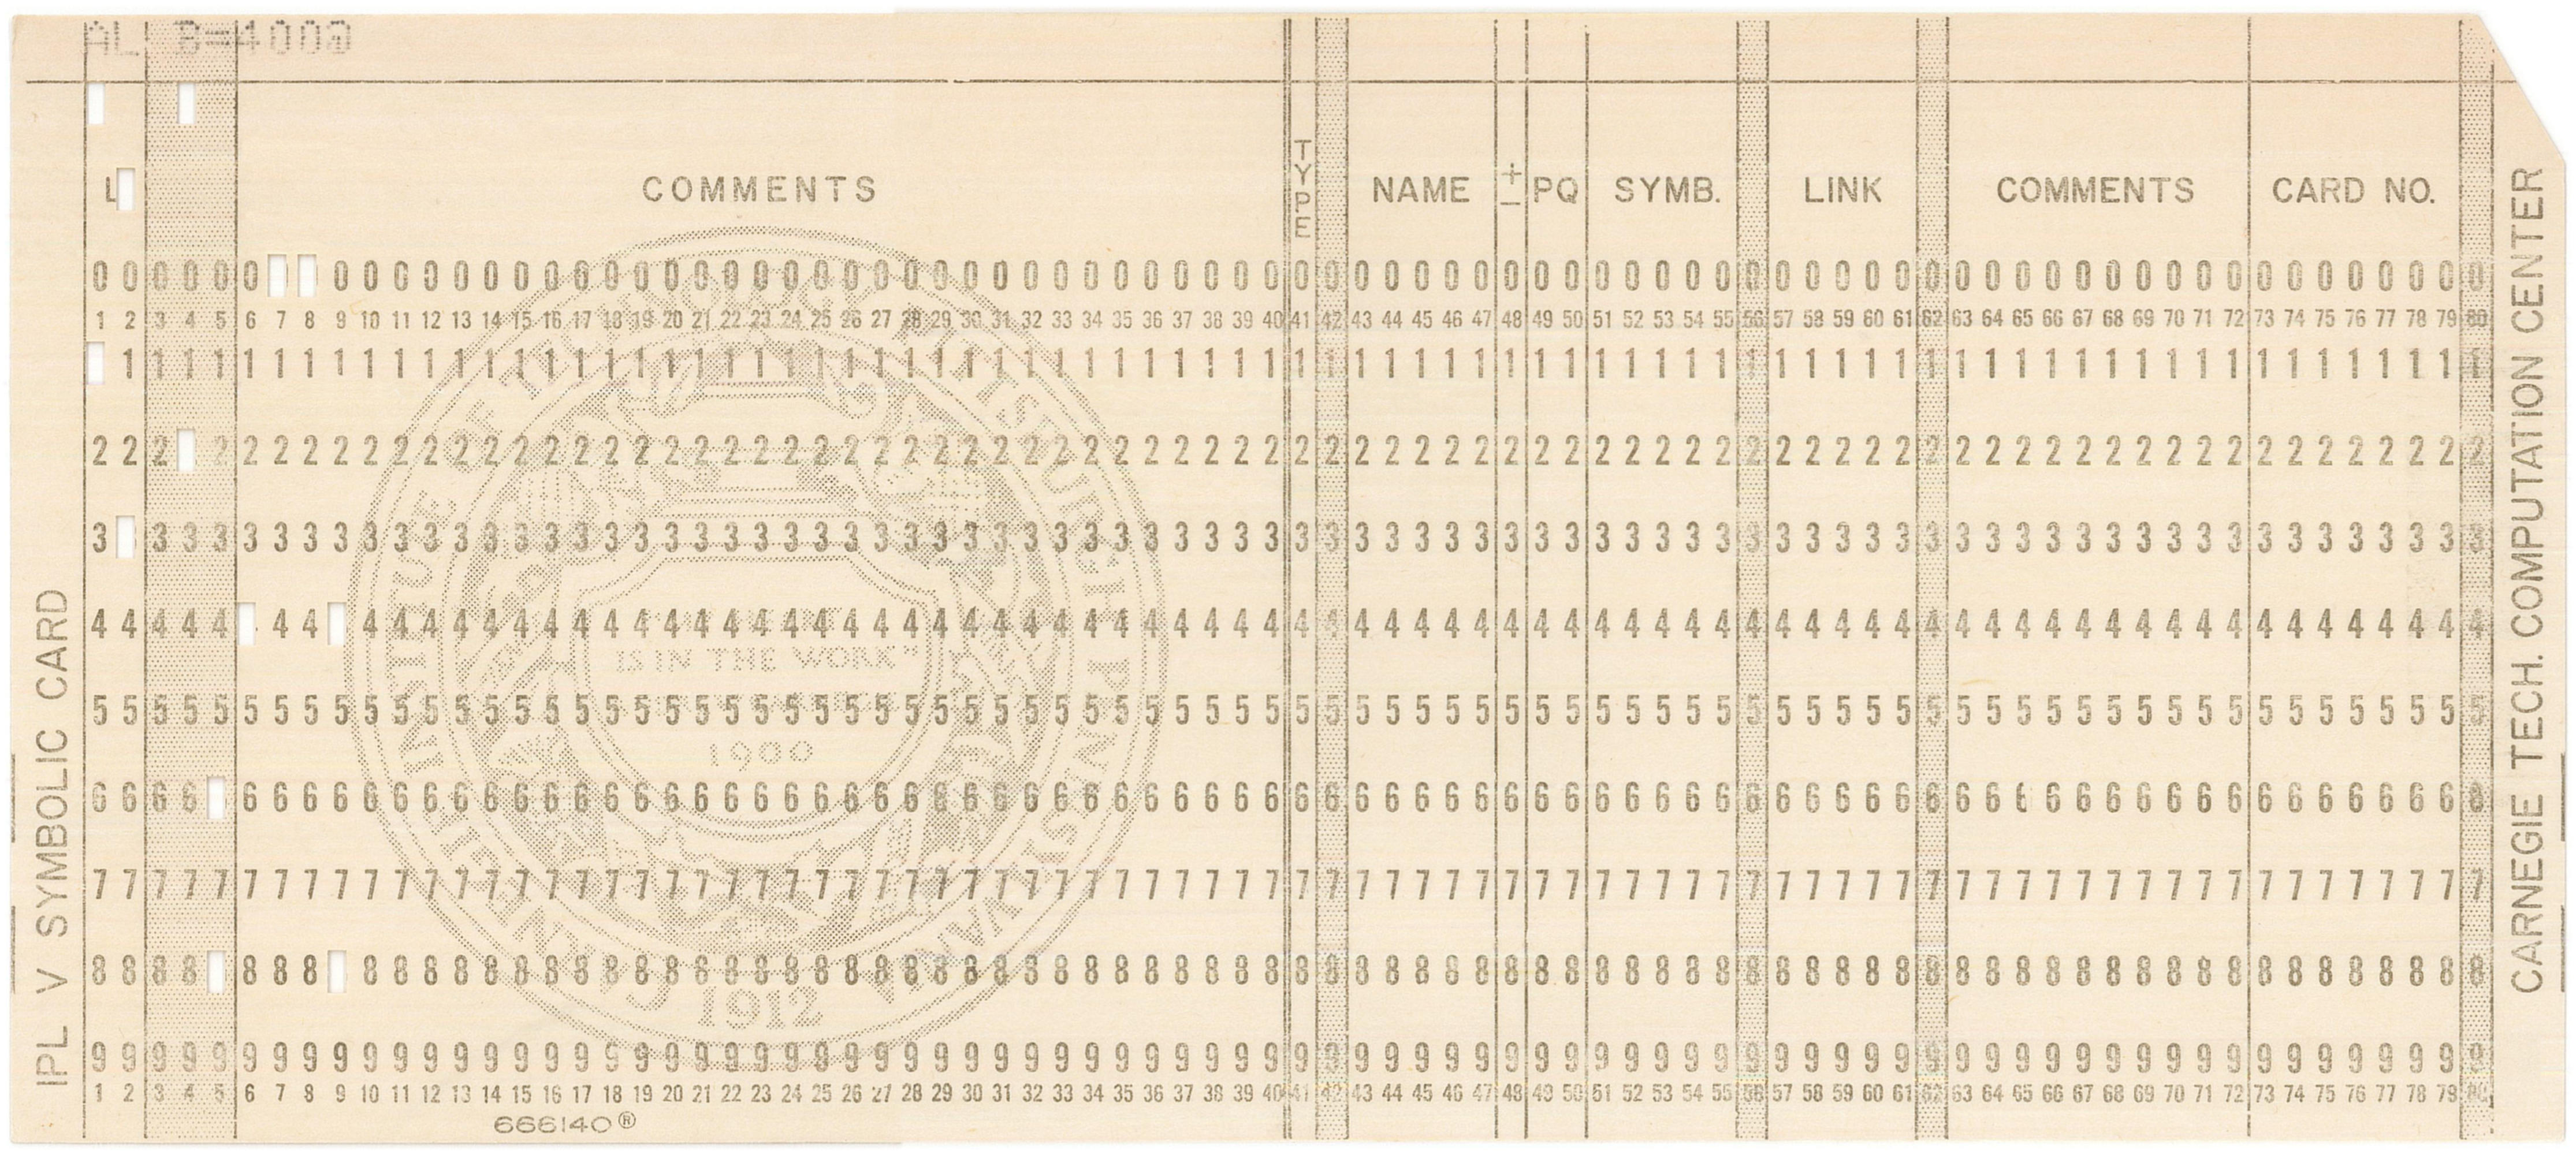 AL B=400@
IPL V SYMBOLIC CARD
L COMMENTS TYPE NAME + - PQ SYMB. LINK COMMENTS CARD NO.
0 0 0 0 0 0 0 0 0 0 0 0 0 0 0 0 0 0 0 0 0 0 0 0 0 0 0 0 0 0 0 0 0 0 0 0 0 0 0 0 0 0 0 0 0 0 0 0 0 0 0 0 0 0 0 0 0 0 0 0 0 0 0 0 0 0 0 0 0 0 0 0 0 0 0 0 0 0
1 2 3 4 5 6 7 8 9 10 11 12 13 14 15 16 17 18 19 20 21 22 23 24 25 26 27 28 29 30 31 32 33 34 35 36 37 38 39 40 41 42 43 44 45 46 47 48 49 50 51 52 53 54 55 56 57 58 59 60 61 62 63 64 65 66 67 68 69 70 71 72 73 74 75 76 77 78 79 80
1 1 1 1 1 1 1 1 1 1 1 1 1 1 1 1 1 1 1 1 1 1 1 1 1 1 1 1 1 1 1 1 1 1 1 1 1 1 1 1 1 1 1 1 1 1 1 1 1 1 1 1 1 1 1 1 1 1 1 1 1 1 1 1 1 1 1 1 1 1 1 1 1 1 1 1 1 1 1
2 2 2 2 2 2 2 2 2 2 2 2 2 2 2 2 2 2 2 2 2 2 2 2 2 2 2 2 2 2 2 2 2 2 2 2 2 2 2 2 2 2 2 2 2 2 2 2 2 2 2 2 2 2 2 2 2 2 2 2 2 2 2 2 2 2 2 2 2 2 2 2 2 2 2 2 2 2 2
3 3 3 3 3 3 3 3 3 3 3 3 3 3 3 3 3 3 3 3 3 3 3 3 3 3 3 3 3 3 3 3 3 3 3 3 3 3 3 3 3 3 3 3 3 3 3 3 3 3 3 3 3 3 3 3 3 3 3 3 3 3 3 3 3 3 3 3 3 3 3 3 3 3 3 3 3 3 3
4 4 4 4 4 4 4 4 4 4 4 4 4 4 4 4 4 4 4 4 4 4 4 4 4 4 4 4 4 4 4 4 4 4 4 4 4 4 4 4 4 4 4 4 4 4 4 4 4 4 4 4 4 4 4 4 4 4 4 4 4 4 4 4 4 4 4 4 4 4 4 4 4 4 4 4 4 4
IS IN THE WORK"
5 5 5 5 5 5 5 5 5 5 5 5 5 5 5 5 5 5 5 5 5 5 5 5 5 5 5 5 5 5 5 5 5 5 5 5 5 5 5 5 5 5 5 5 5 5 5 5 5 5 5 5 5 5 5 5 5 5 5 5 5 5 5 5 5 5 5 5 5 5 5 5 5 5 5 5 5 5 5 5
1900
6 6 6 6 6 6 6 6 6 6 6 6 6 6 6 6 6 6 6 6 6 6 6 6 6 6 6 6 6 6 6 6 6 6 6 6 6 6 6 6 6 6 6 6 6 6 6 6 6 6 6 6 6 6 6 6 6 6 6 6 6 6 6 6 6 6 6 6 6 6 6 6 6 6 6 6 6 6 6
7 7 7 7 7 7 7 7 7 7 7 7 7 7 7 7 7 7 7 7 7 7 7 7 7 7 7 7 7 7 7 7 7 7 7 7 7 7 7 7 7 7 7 7 7 7 7 7 7 7 7 7 7 7 7 7 7 7 7 7 7 7 7 7 7 7 7 7 7 7 7 7 7 7 7 7 7 7 7 7
8 8 8 8 8 8 8 8 8 8 8 8 8 8 8 8 8 8 8 8 8 8 8 8 8 8 8 8 8 8 8 8 8 8 8 8 8 8 8 8 8 8 8 8 8 8 8 8 8 8 8 8 8 8 8 8 8 8 8 8 8 8 8 8 8 8 8 8 8 8 8 8 8 8 8 8 8 8
1912
9 9 9 9 9 9 9 9 9 9 9 9 9 9 9 9 9 9 9 9 9 9 9 9 9 9 9 9 9 9 9 9 9 9 9 9 9 9 9 9 9 9 9 9 9 9 9 9 9 9 9 9 9 9 9 9 9 9 9 9 9 9 9 9 9 9 9 9 9 9 9 9 9 9 9 9 9 9 9 9
1 2 3 4 5 6 7 8 9 10 11 12 13 14 15 16 17 18 19 20 21 22 23 24 25 26 27 28 29 30 31 32 33 34 35 36 37 38 39 40 41 42 43 44 45 46 47 48 49 50 51 52 53 54 55 56 57 58 59 60 61 62 63 64 65 66 67 68 69 70 71 72 73 74 75 76 77 78 79 80
666140®
CARNEGIE TECH. COMPUTATION CENTER